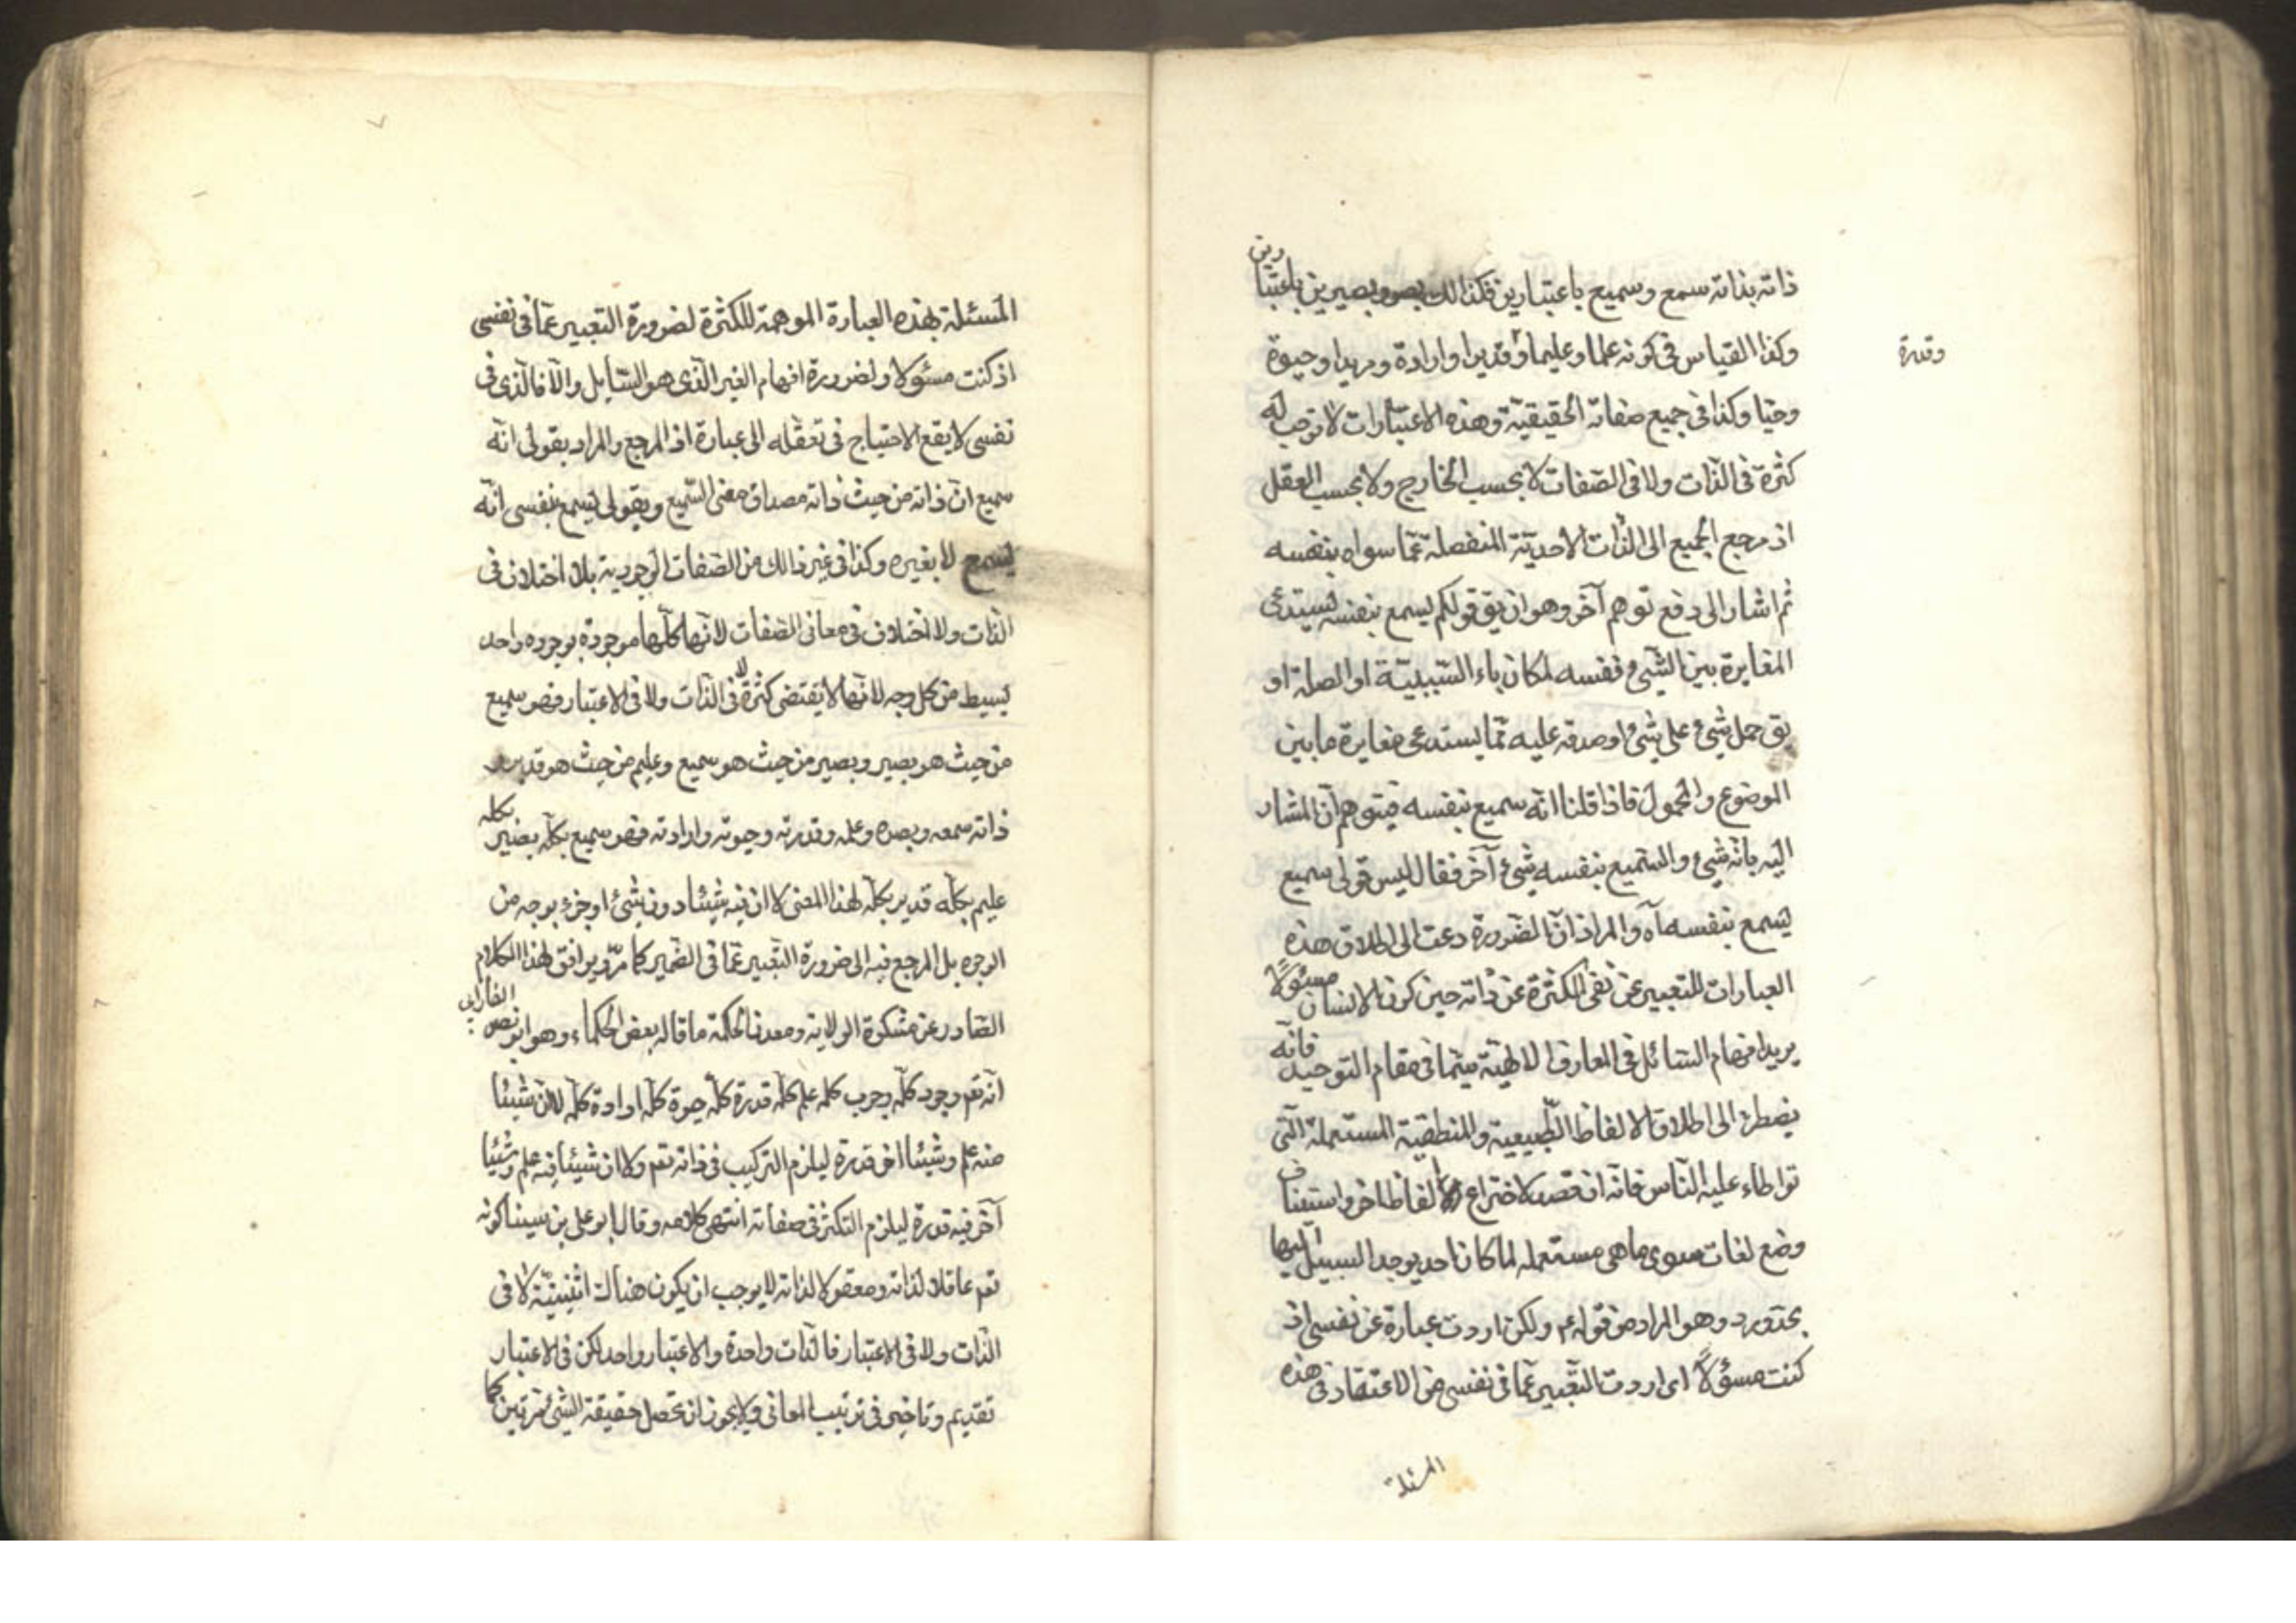 ذاته بذاته سمع وسميع باعتبارين فكذالك بصر وبصير ين باعتبارين
وكذا القياس في كونه علما وعليما وقديرا وارادة ومريدا وحيوة
وقدرة
وحيا وكذا في جميع صفاته الحقيقية وهذه الاعتبارات لا توجب له
كثرة في الذات ولا في الصفات لا بحسب الخارج ولا بحسب العقل
اذ مرجع الجميع الى الذات الاحدية المنفصلة عما سواه بنفسه
ثم اشار الى دفع توهم آخر وهو ان يق قولكم يسمع بنفسه يستدعى
المغايرة بين الشىء ونفسه لمكان باء السببية او الصلة او
يق حمل شىء على شىء او صدقه عليه مما يستدعى مغايرة ما بين
الموضوع والمحمول فاذا قلنا انه سميع بنفسه فيتوهم ان المشار
اليه بانه شىء والسميع بنفسه شىء آخر فقال ليس قولى سميع
يسمع بنفسه آه والمراد ان الضرورة دعت الى اطلاق هذه
العبارات للتعبير عن نفى الكثرة عن ذاته حين كون الانسان مسئولًا
يريد افهام السائل في المعارف الالهية سيما في مقام التوحيد فانه
يضطر الى اطلاق الالفاظ الطبيعية والمنطقية المستعملة التى
تواطاء عليه الناس فانه ان قصد لاختراع الفاظ اخر واستيناف
وضع لغات سوى ما هى مستعمله لما كان احد يوجد السبيل اليها
بحذو رد وهو المراد من قوله ع ولكن اردت عبارة عن نفسى اذ
كنت مسؤلاً اى اردت التعبير عما في نفسى من الاعتقاد في هذه
المسئلة
المسئلة بهذه العبارة الموهمة للكثرة لضرورة التعبير عما في نفسى
اذ كنت مسئولا ولضرورة افهام الغير الذى هو السايل والا فالذى في
نفسى لا يقع الاحتياج في تعقله الى عبارة اذ المرجع والمراد بقولى انه
سميع ان ذاته من حيث ذاته مصداق معنى السميع وبقولى يسمع بنفسى انه
يسمع لا بغيره وكذا في غير ذالك من الصفات الوجودية بلا اختلاف في
الذات ولا اختلاف في معانى الصفات لانها كلها موجودة بوجود واحد
بسيط من كل وجه لانها لا يقتضى كثرة لا في الذات ولا في الاعتبار فهو سميع
من حيث هو بصير وبصير من حيث هو سميع وعليم من حيث هو قدير
ذاته سمعه وبصره وعلمه وقدرته وحيوته وارادته فهو سميع بكله بصير بكله
عليم بكله قدير بكله لهذا المعنى لا ان فيه شيئا دون شىء او جزء بوجه من
الوجوه بل المرجع فيه الى ضرورة التعبير عما في الضمير كما مر ويوافق لهذا الكلام
الصادر عن مشكوة الولاية ومعدن الحكمة ما قاله بعض الحكماء وهو ابو نصر الفارابى
انه تعم وجود كله وجوب كله علم كله قدرة كله حيوة كله ارادة كله لا ان شيئا
منه علم وشيئا اخر قدرة ليلزم التركيب في ذاته تعم ولا ان شيئا فيه علم وشيئا
آخر فيه قدرة ليلزم التكثر في صفاته انتهى كلامه وقال ابو على بن سينا كونه
تعم عاقلا لذاته ومعقولا لذاته لا يوجب ان يكون هناك اثنينية لا في
الذات ولا في الاعتبار فالذات واحدة والاعتبار واحد لكن في الاعتبار
تقديم وتاخير في ترتيب المعانى ولا يجوز ان تحصل حقيقة الشىء مرتين كما